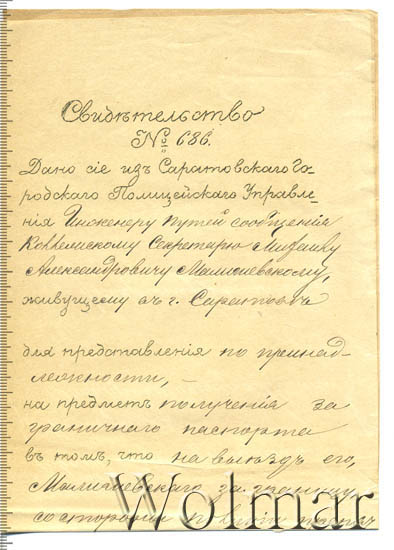 Свидѣтельство
№ 686.
Дано сіе изъ Саратовскаго Го-
родскаго Полицейскаго Управле-
нія Инженеру путей сообщенія
Коллежскому Секретарю Михаилу
Александровичу
живущему въ г. Саратовѣ
для представленія по принад-
лежности, –
на предметъ полученія за
граничнаго паспорта
въ томъ, что на выѣздъ его,
за границу
со стороны
Wolmar